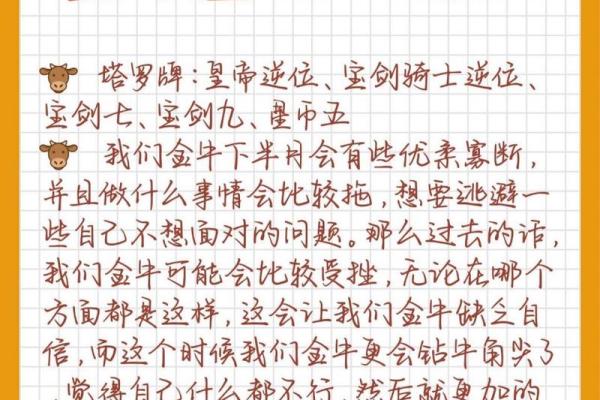 塔罗牌：皇帝逆位、宝剑骑士逆位、
宝剑七、宝剑九、星币五
我们金牛下半月会有些优柔寡断，
并且做什么事情会比较拖，想要逃避一
些自己不想面对的问题。那么过去的话，
我们金牛可能会比较受挫，无论在哪个
方面都是这样，这会让我们金牛缺乏自
信，而这个时候我们金牛更会钻牛角尖了
，觉得自己什么都不行，然后就更加的